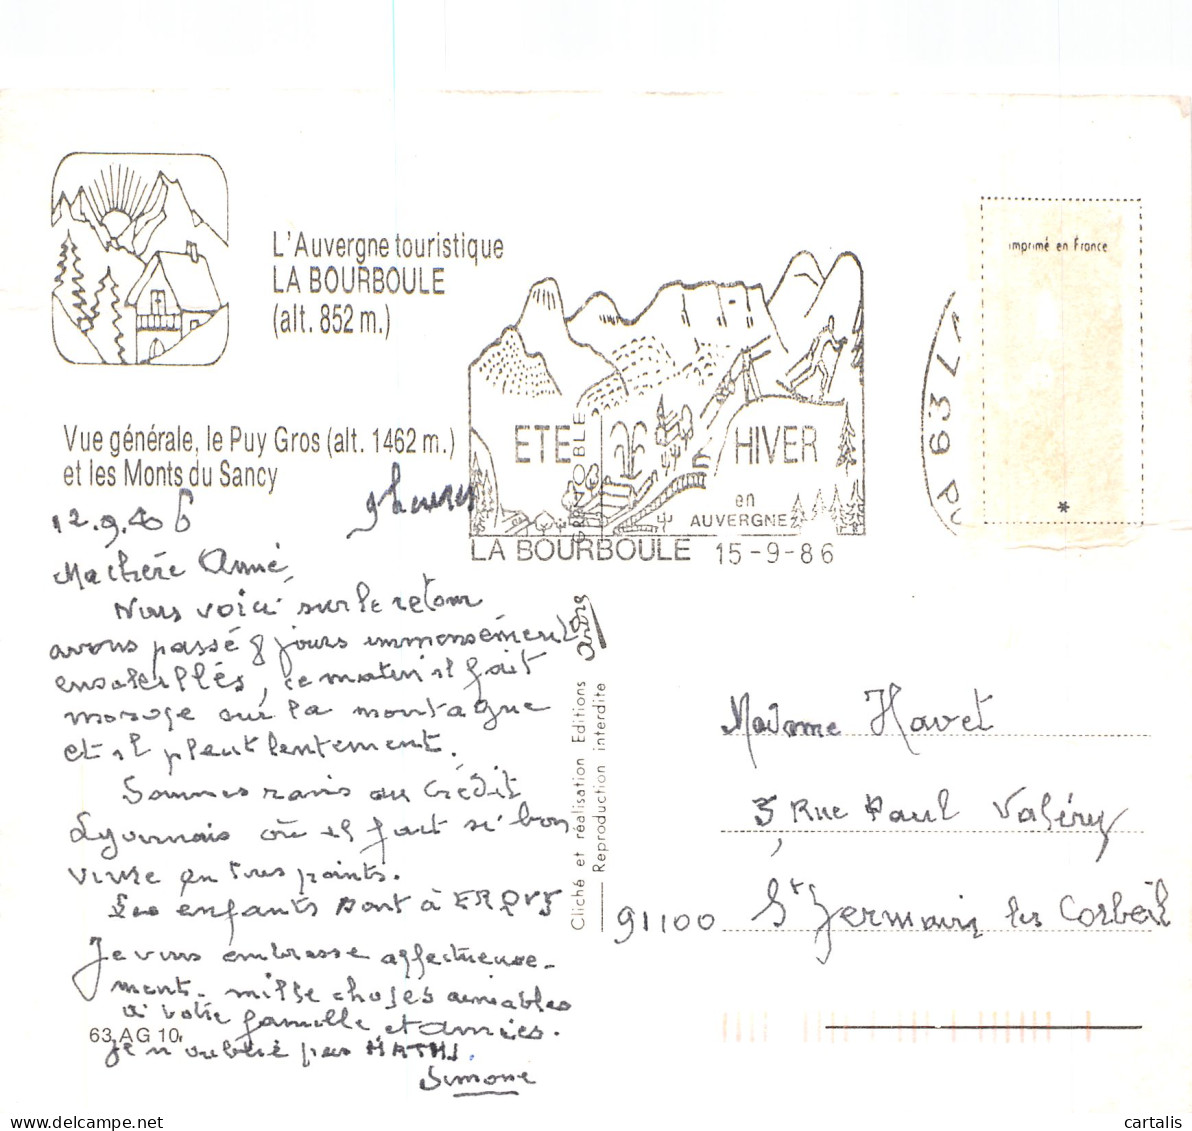 L'Auvergne touristique
LA BOURBOULE
(alt. 852 m.)
Vue générale, le Puy Gros (alt. 1462 m.)
et les Monts du Sancy
imprimé en France
*
ETE HIVER
en
AUVERGNE
LA BOURBOULE 15-9-86
63 LA
12.9.
9 heures
Ma chère Anne,
Nous voici sur le retour
avons passé 8 jours immensément
ensoleillés, ce matin il fait
sur la montagne
et il pleut lentement.
Sommes ravis au Crédit
Lyonnais où il fait si bon
vivre en tres points.
Les enfants sont à ERQUY
Je vous embrasse affectueuse-
ment. mille choses aimables
à votre famille et amies.
je n'oublie pas
Simone
63 AG 10
Cliché et réalisation Editions André
Reproduction interdite
Madame Havet
3, Rue Paul Valéry
91100 St Germain les Corbeil
cartalis